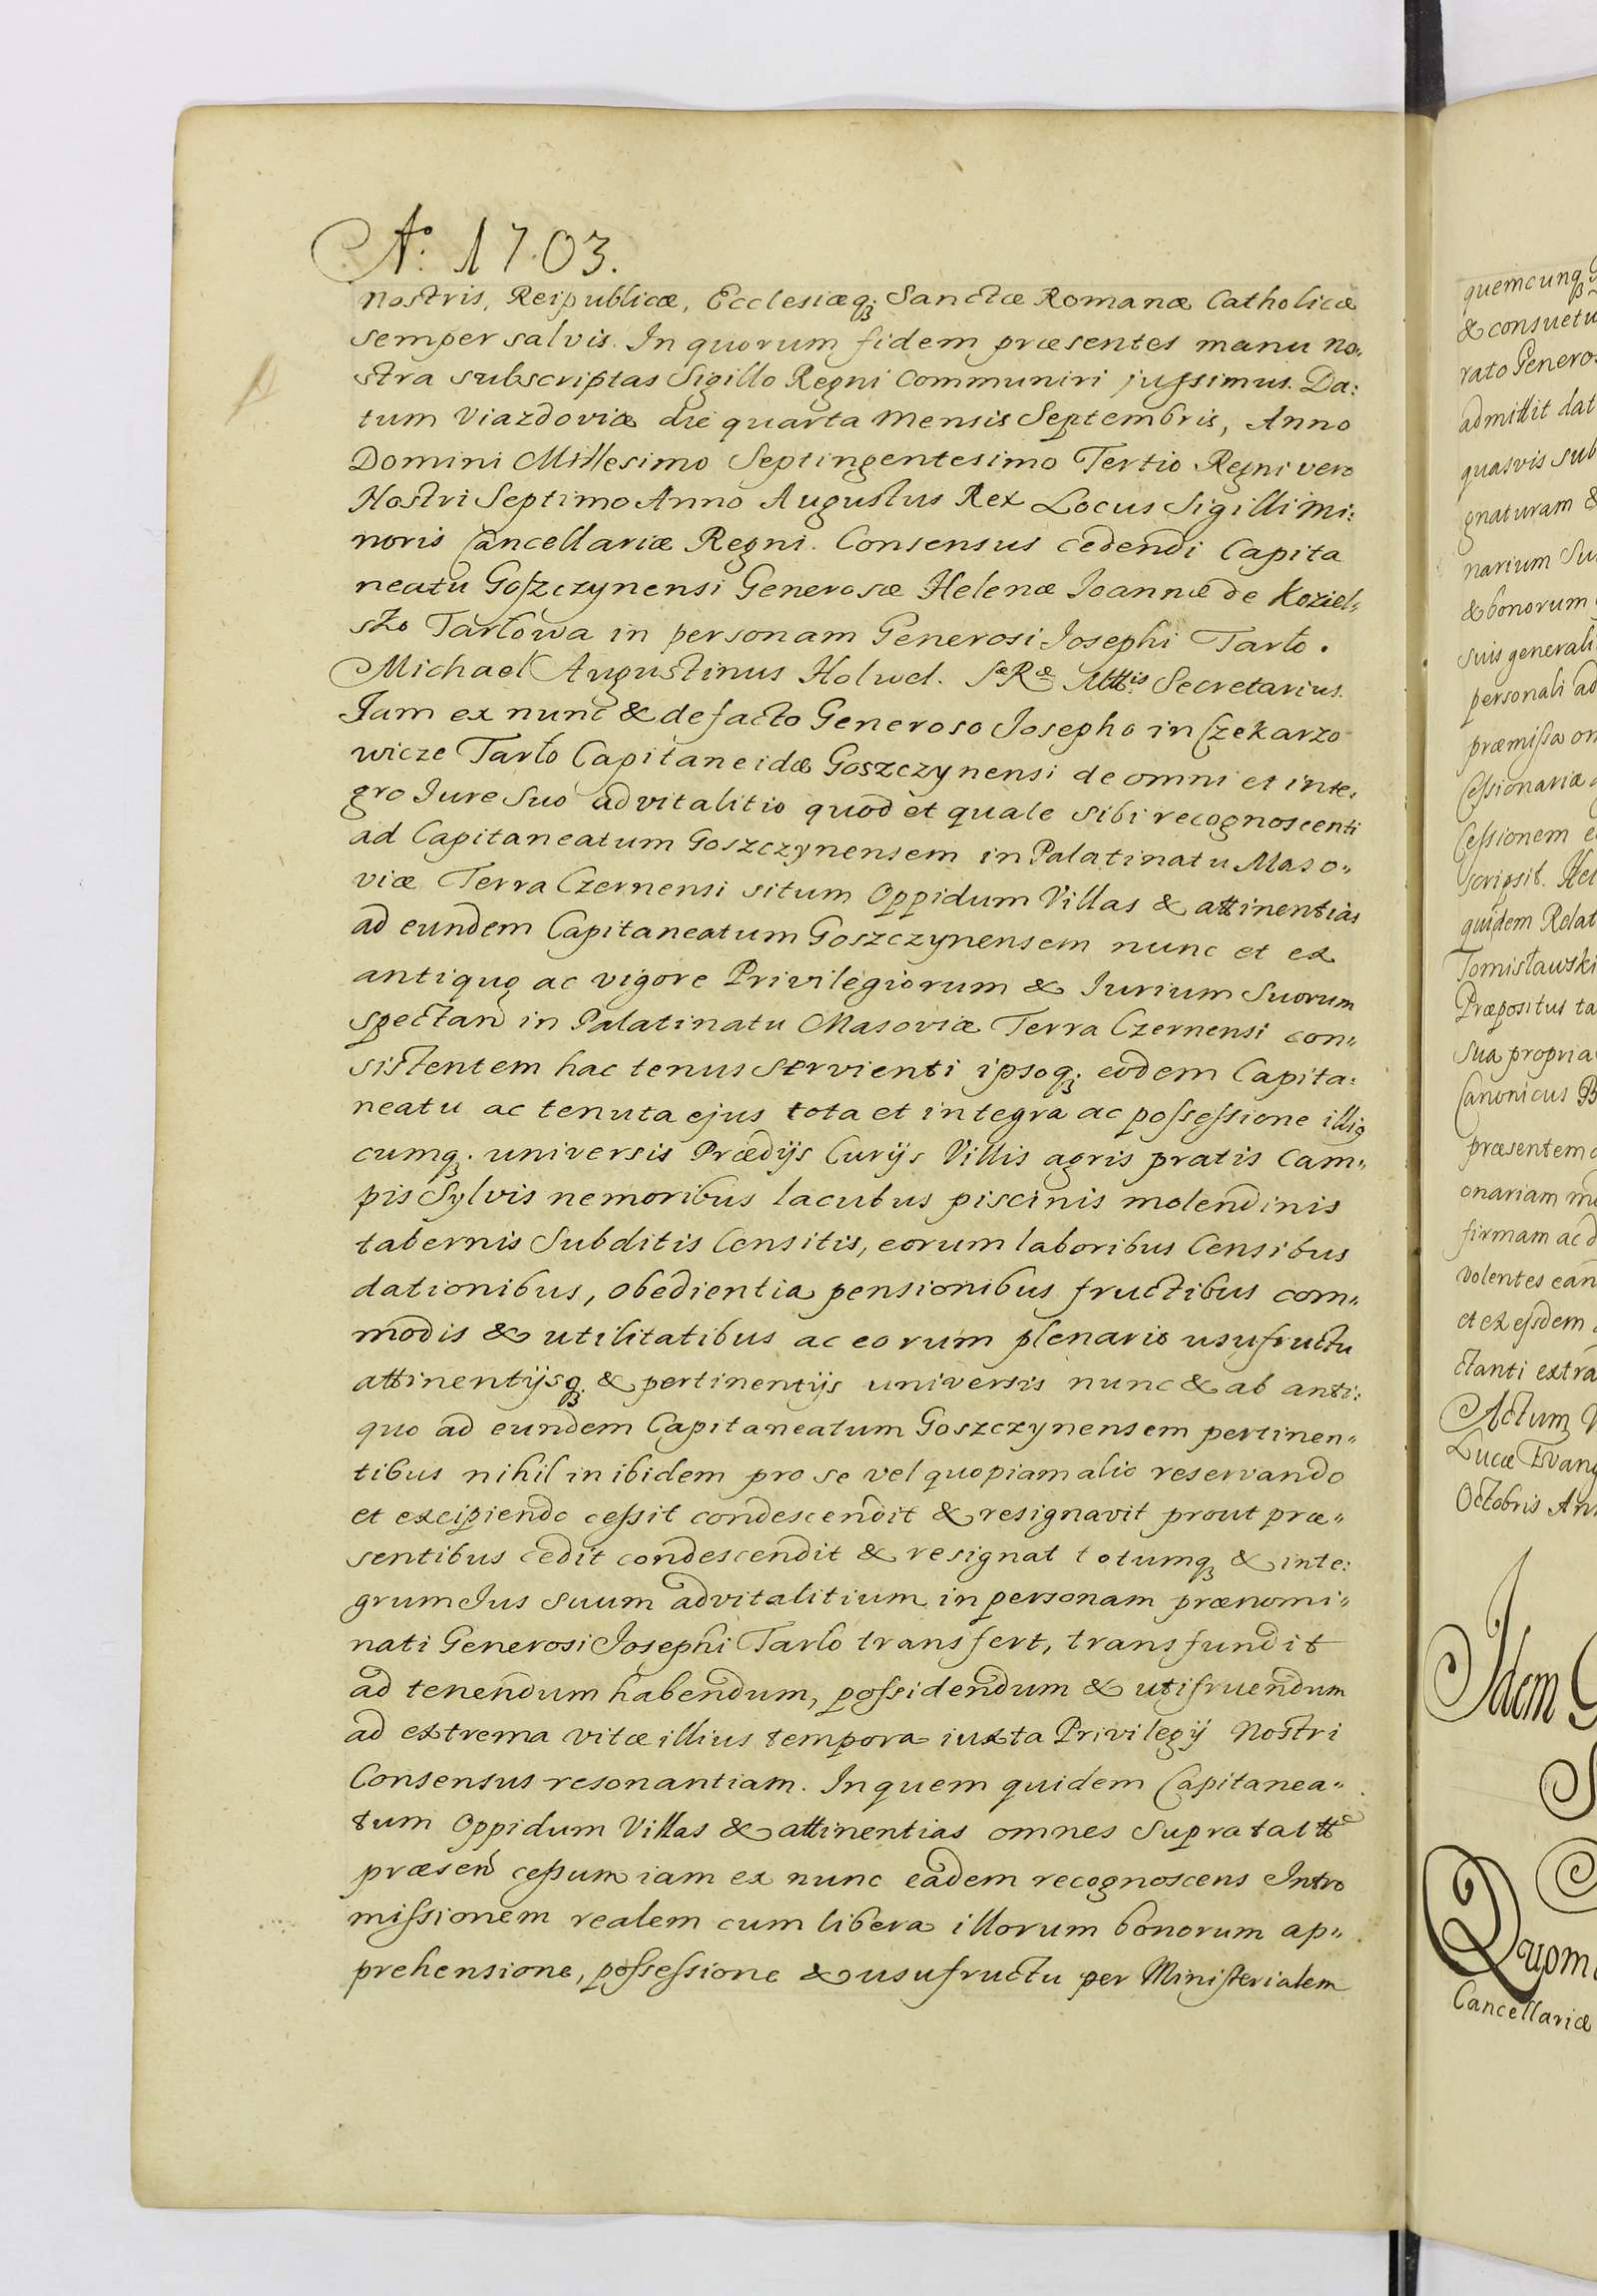 Aº. 1703.
nostris, Reipublicæ, Ecclesiæq; Sanctæ Romanæ Catholicæ
semper salvis. In quorum fidem præsentes manu no„
stra subscriptas Sigillo Regni Communiri jussimus. Da:
tum Viazdoviæ die quarta Mensis Septembris, Anno
Domini Millesimo Septingentesimo Tertio Regni vero
Nostri Septimo Anno Augustus Rex Locus Sigilli Mi:
noris Cancellariæ Regni. Consensus cedendi Capita
neatu Goszczynensi Generosæ Helenæ Joannæ de Koziel„
sko Tarłowa in personam Generosi Josephi Tarło.
Michael Augustinus Holwel. Sæ Ræ Mttis Secretarius.
Iam ex nunc & defacto Generoso Josepho in Czekarzo
wicze Tarło Capitaneidæ Goszczynensi de omni et inte„
gro Iure Suo advitalitio quod et quale sibi recognoscenti
ad Capitaneatum Goszczynensem in Palatinatu Maso„
viæ Terra Czernensi situm Oppidum Villas & attinentias
ad eundem Capitaneatum Goszczynensem nunc et ex
antiquo ac vigore Privilegiorum & Iurium Suorum
spectan in Palatinatu Masoviæ Terra Czernensi con„
sistentem hac tenus servienti ipsoq; eodem Capita:
neatu ac tenuta ejus tota et integra ac possessione illig
cumq; universis Prædijs Curijs Villis agris pratis Cam„
pis Sylvis nemoribus lacubus piscinis molendinis
tabernis Subditis Censitis, eorum laboribus Censibus
dationibus, obedientia pensionibus fructibus com„
modis & utilitatibus ac eorum plenario usufructu
attinentijsq; & pertinentijs universis nunc & ab anti:
quo ad eundem Capitaneatum Goszczynensem pertinen„
tibus nihil in ibidem pro se vel quopiam alio reservando
et excipiendo cessit condescendit & resignavit prout præ„
sentibus cedit condescendit & resignat totumq; & inte:
grum Ius suum advitalitium in personam prænomi„
nati Generosi Josephi Tarlo transfert, transfundit
ad tenendum habendum, possidendum & utifruendum
ad extrema vitæ illius tempora iuxta Privilegij Nostri
Consensus resonantiam. In quem quidem Capitanea„
tum Oppidum Villas & attinentias omnes Supratattˢ
præsen cessum iam ex nunc eadem recognoscens Intro
missionem realem cum libera illorum bonorum ap„
prehensione, possessione & usufructu per Ministerialem
quemcunq;
& consuetu
rato Generos
admittit dat
quasvis sub
gnaturam &
narium Su
& bonorum
suis generali
personali ad
præmissa om
Cessionariæ
Cessionem e
scripsit. Hel
quidem Relat
Tomisławski
Præpositus ta
Sua propria
Canonicus B
præsentem
onariam m
firmam ac d
volentes ean
et ex ejsdem
ctanti extra
Actum V
Lucæ Evang
Octobris An
Idem G
Quom
Cancellariæ